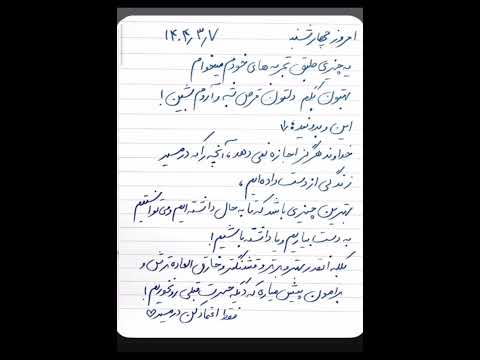 امروز چهارشنبه ۱۴۰۴/۳/۷
یه چیزی طبق تجربه های خودم میخوام
بهتون بگم دلتون قرص شه و آروم بشین!
این و بدونید که
خداوند هرگز اجازه نمی دهد، آنچه را که در مسیر
زندگی از دست داده ایم،
بهترین چیزی باشد که تا به حال داشته ایم و می توانستیم
به دست بیاریم و یا داشته باشیم!
بلکه انقدر بهتر و برتر و قشنگتر و خارق العاده ترش و
برامون پیش میاره که دیگه حسرت قبلی رو نخوریم!
فقط اعتماد کن در مسیر♡